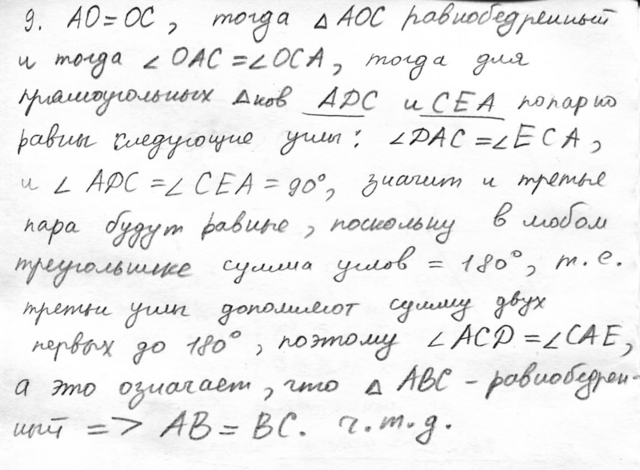 9. AO=OC, тогда △AOC равнобедренный
и тогда ∠OAC=∠OCA, тогда для
прямоугольных △ков ADC и CEA попарно
равны следующие углы: ∠DAC=∠ECA,
и ∠ADC=∠CEA=90°, значит и третье
пара будут равные, поскольку в любом
треугольнике сумма углов = 180°, т.е.
третьи углы дополняют сумму двух
первых до 180°, поэтому ∠ACD=∠CAE,
а это означает, что △ ABC - равнобедрен-
ный => AB=BC. ч.т.д.